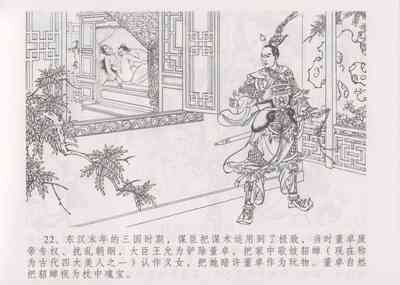 22、东汉末年的三国时期，谋臣把谋术运用到了极致，当时董卓废
帝专权、扰乱朝纲，大臣王允为铲除董卓，把家中歌妓貂蝉（现在称
为古代四大美人之一）认作义女，把她暗许董卓作为玩物。董卓自然
把貂蝉视为枕中瑰宝。